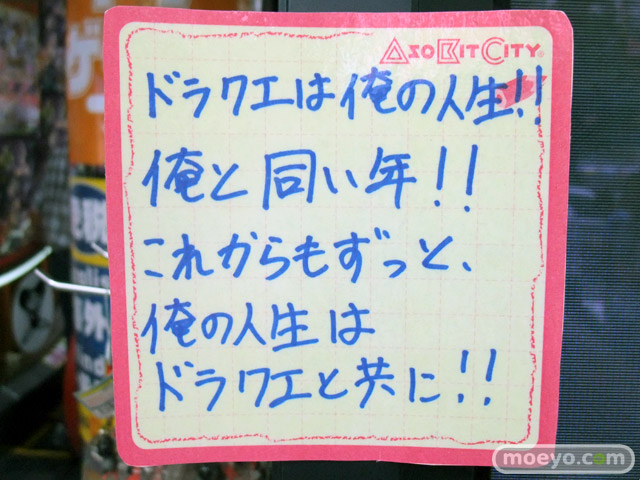 AsoBitCity
ドラクエは俺の人生!!
俺と同い年!!
これからもずっと、
俺の人生は
ドラクエと共に!!
moeyo.com